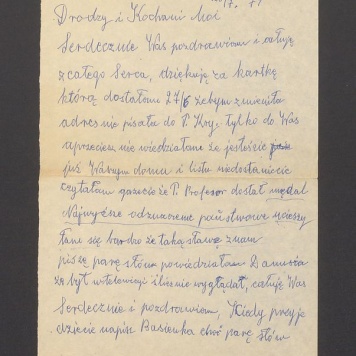 Drodzy i Kochani Moi
Serdecznie Was pozdrawiam i całuję
z całego Serca, dziękuję za kartkę
którą dostałam 27/6 żebym zmieniła
adres nie pisała do P. Kry. tylko do Was
uprzeciem nie wiedziałam że jesteście
już Waszym domu i listu niedostaniecie
czytałam gazecie że P. Profesor dostał medal
Najwyższe odznaczenie państwowe ucieszy
łam się bardzo że taką sławę znam
piszę parę słów powiedziałam Danusia
że był wtelewizji i ślicznie wyglądał, całuję Was
Serdecznie i pozdrawiam, Kiedy przyje
dziecie napisz Basienka choć parę słów